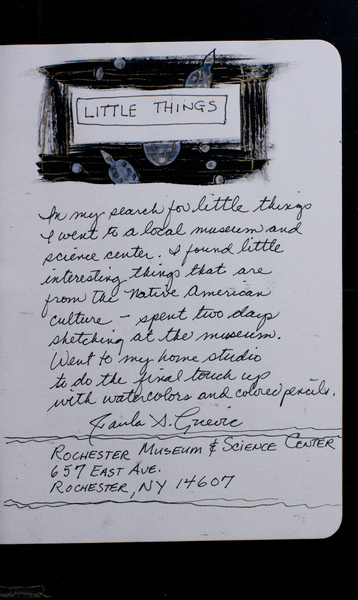 LITTLE THINGS
In my search for little things
I went to a local museum and
science center. I found little
interesting things that are
from the Native American
culture – spent two days
sketching at the museum.
Went to my home studio
to do the final touch up
with watercolors and colored pencils.
Paula S.
ROCHESTER MUSEUM & SCIENCE CENTER
657 EAST AVE.
ROCHESTER, NY 14607